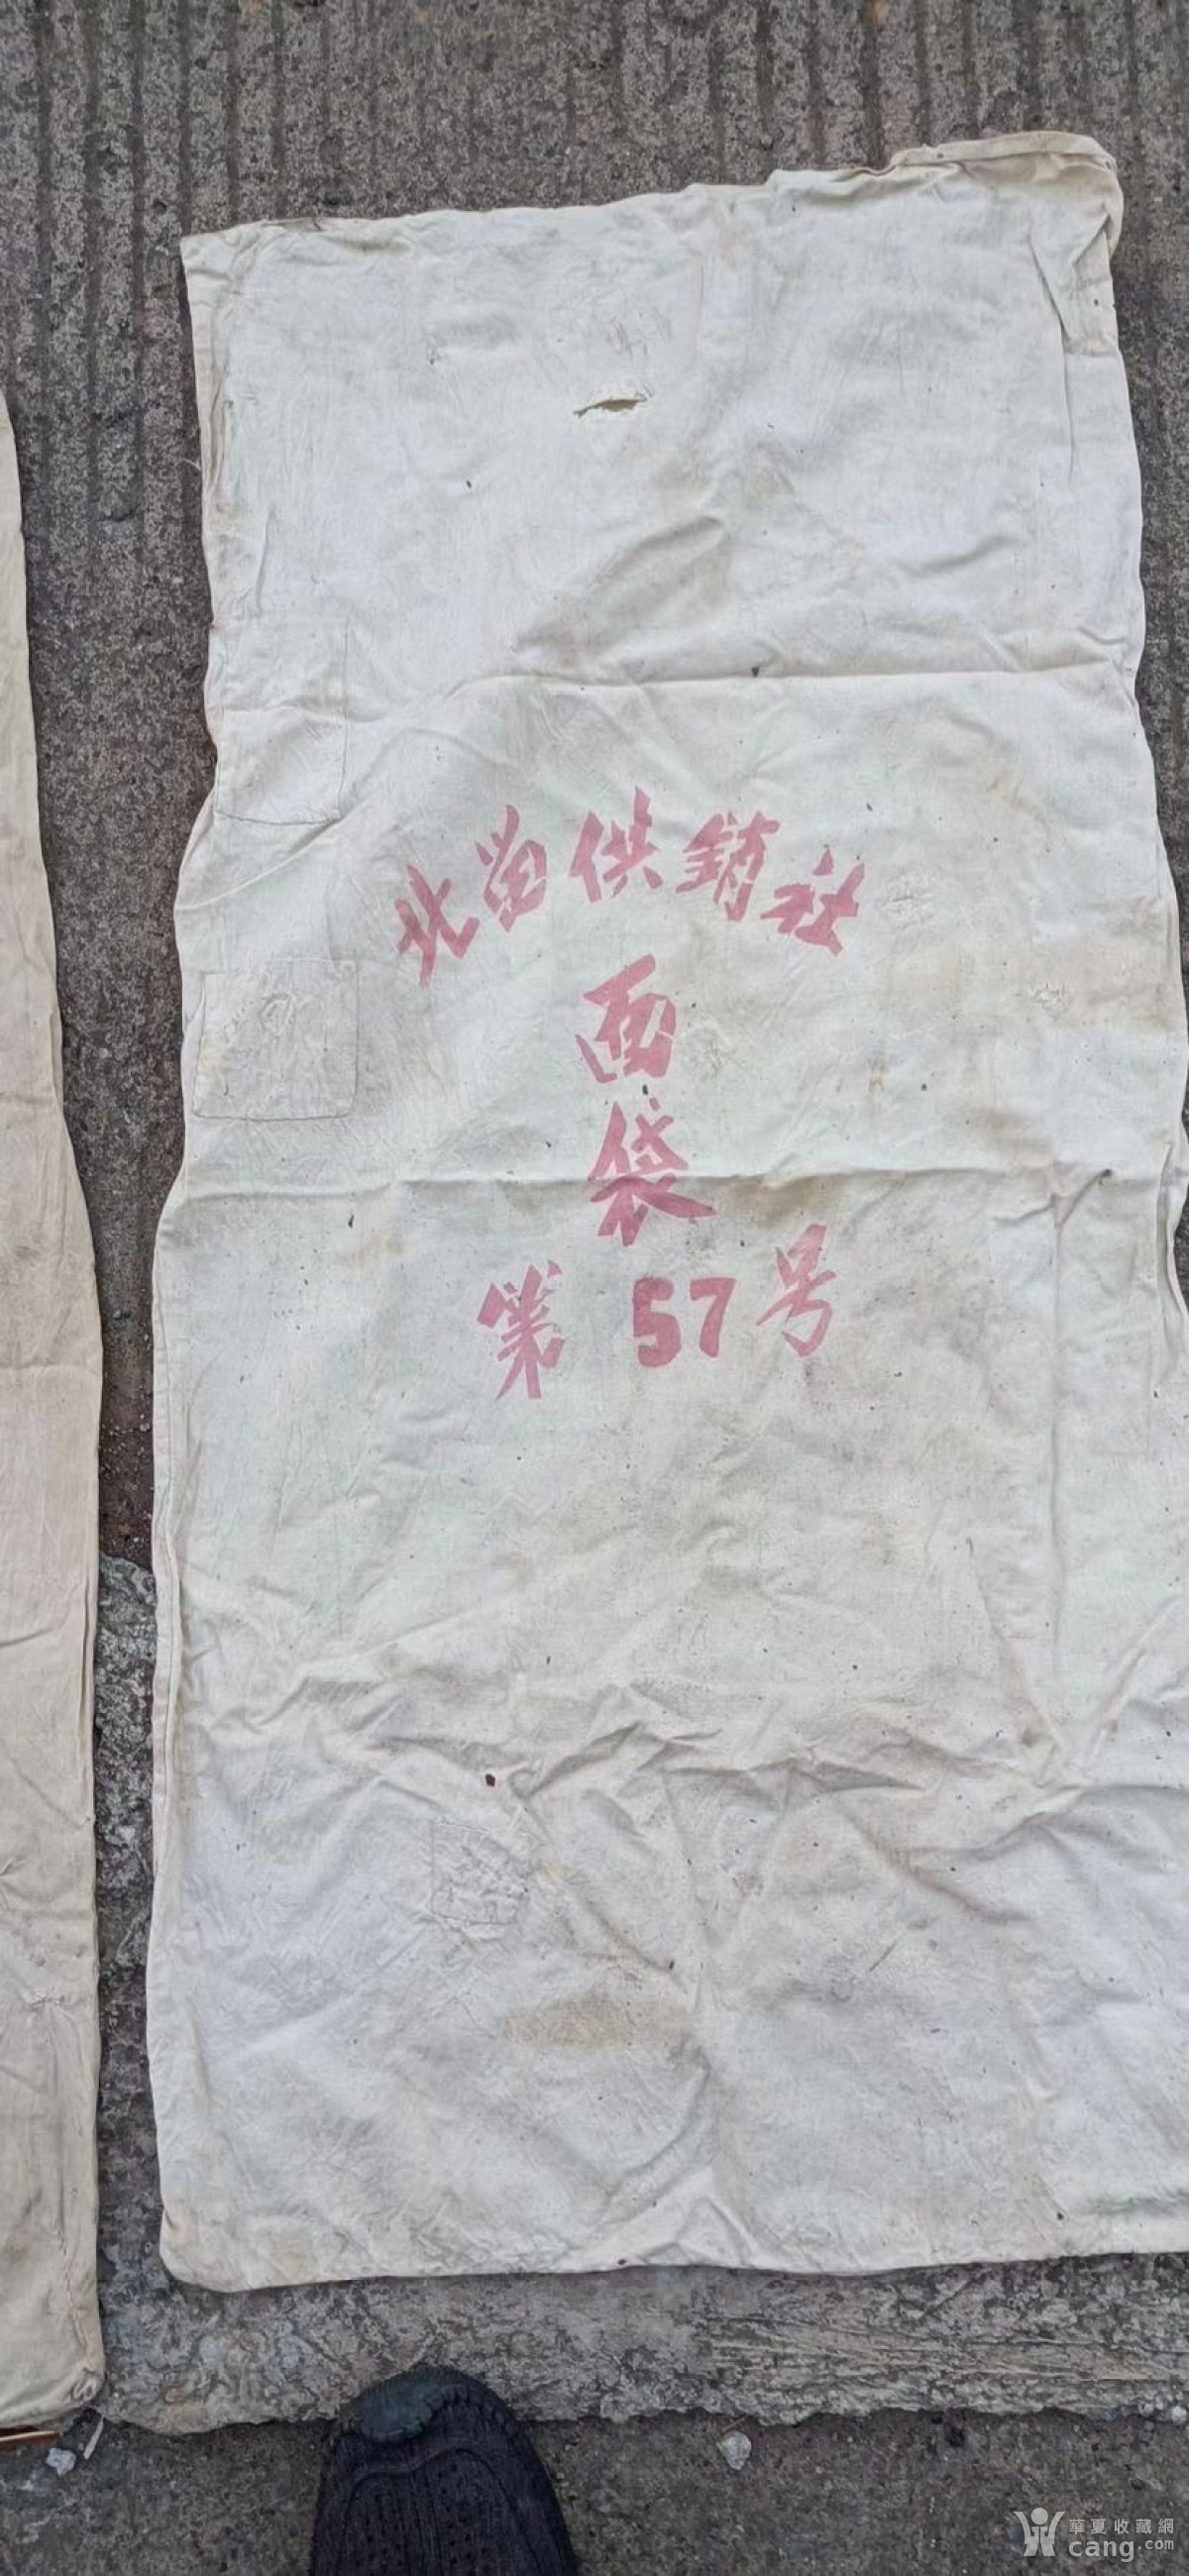 北苗供銷社
面
袋
第 57 号
華夏收藏網
cang.com